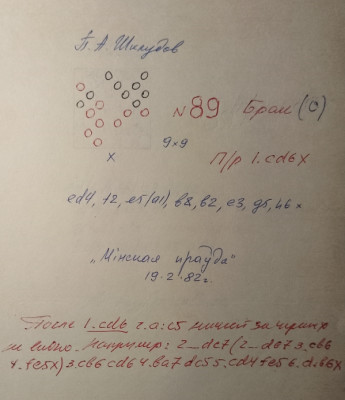 П. А. Шклудов
N 89 Брак (О)
9x9
x
П/р 1.cd6X
ed4, f2, e5(a1), b8, b2, e3, g5, h6 x
„Мінская праўда"
19.2.82г.
После 1.cd6 2. a:c5 ничья за черных
не видно. Например: 2...dc7 (2...de7 3.cb6
4.fe5x) 3.cb6 cd6 4.ba7 dc5 5.cd4 fe5 6.db6X